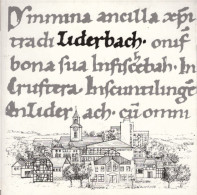 immina ancilla xpi
tradi Liderbach. omē
bona sua Infischbah. In
Cruftera. Inscuntilingē
Inlider ach. cū omni